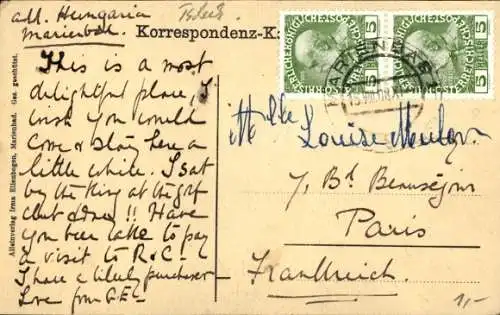 adr. Hungaria
Marienbad.
Korrespondenz-K
This is a most
delightful place, I
wish you would
come & stay here a
little while. I sat
by the King at the golf
club !! Have
you been able to pay
a visit to R & C-!
I have a likely purchaser
Love from G.E-
Alleinverlag Irma Ellenbogen, Marienbad. Ges. geschützt.
MARIENBAD
5
5
5
5
Mlle Louise
7, Bd Beauséjour
Paris
Frankreich.
1,-